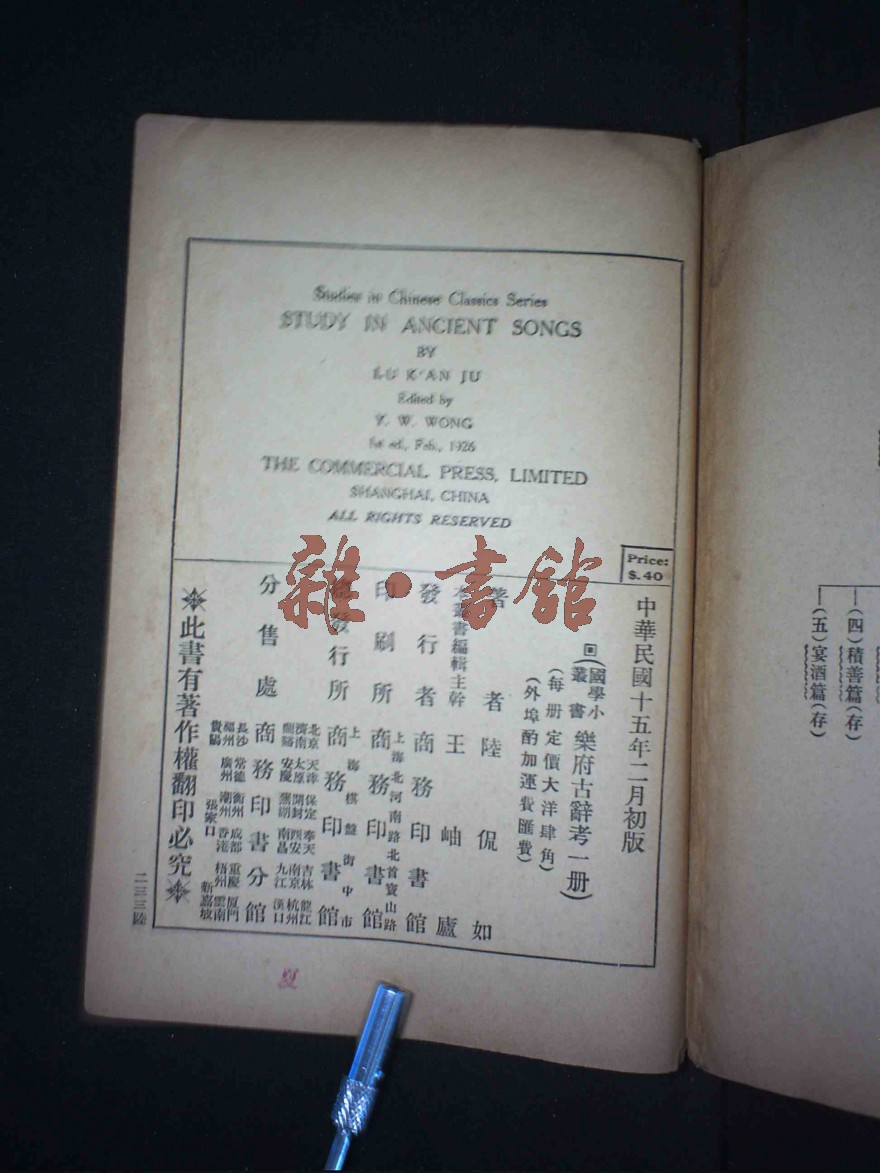 Studies in Chinese Classics Series
STUDY IN ANCIENT SONGS
BY
LU K'AN JU
Edited by
Y. W. WONG
1st ed., Feb., 1926
THE COMMERCIAL PRESS, LIMITED
SHANGHAI, CHINA
ALL RIGHTS RESERVED
Price:
$.40
中華民國十五年二月初版
(國學小叢書)樂府古辭考一册)
(每册定價大洋肆角)
(外埠酌加運費匯費)
著者 陸侃如
本叢書編輯主幹 王岫廬
發行者 商務印書館
印刷所 上海北河南路北首寶山路 商務印書館
總發行所 上海棋盤街中市 商務印書館
分售處 商務印書分館
北京 天津 保定 奉天 吉林 龍江
濟南 太原 開封 西安 南京 杭州
蘭谿 安慶 蕪湖 南昌 九江 漢口
長沙 常德 衡州 成都 重慶 厦門
福州 廣州 潮州 香港 梧州 雲南
貴陽 張家口 新嘉坡
此書有著作權翻印必究
二三三陸
雜·書館
(四)積善篇(存)
(五)宴酒篇(存)